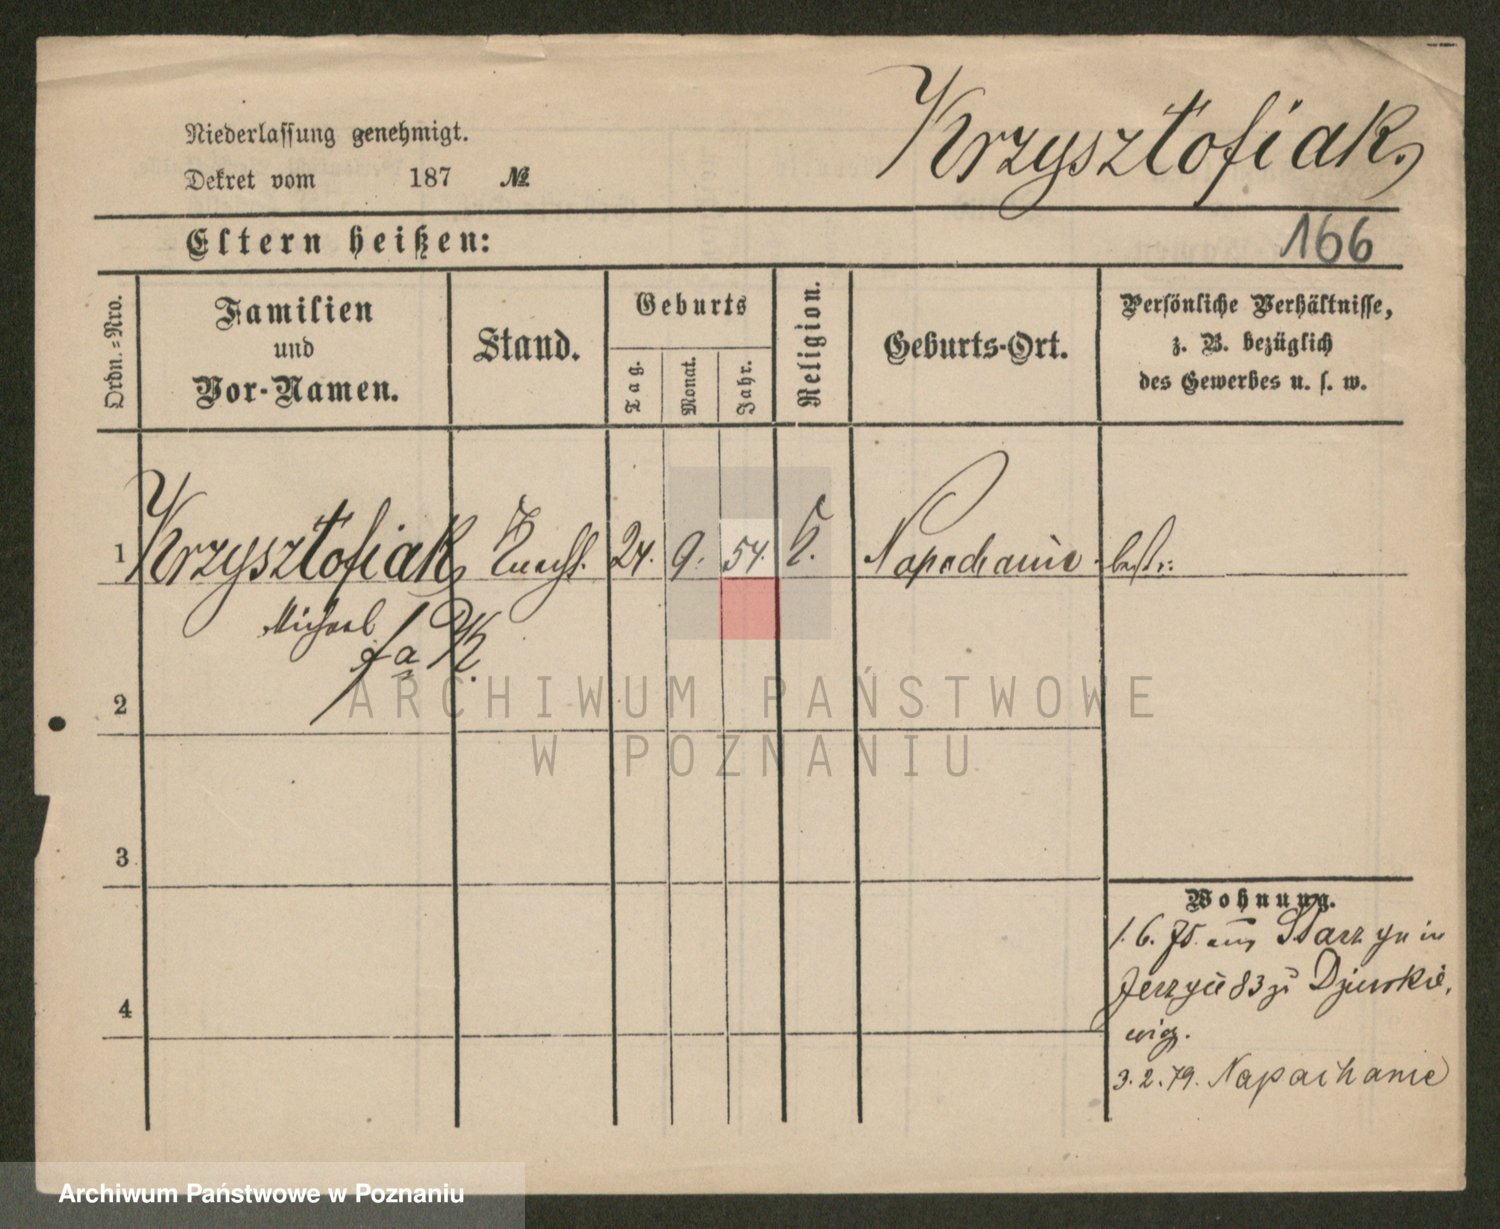 Krzysztofiak.
Niederlassung genehmigt.
Dekret vom 187 №
Eltern heißen:
166
Ordn.=Nro.
Familien
und
Vor-Namen.
Stand.
Geburts
Tag.
Monat.
Jahr.
Religion.
Geburts-Ort.
Persönliche Verhältnisse,
z. B. bezüglich
des Gewerbes u. s. w.
1 Krzysztofiak Knecht. 24. 9. 54. k. Napachanie
Michael
2
3
4
Wohnung.
1. 6. 75. aus in
83 zu
3. 2. 79. Napachanie
ARCHIWUM PAŃSTWOWE
W POZNANIU
Archiwum Państwowe w Poznaniu